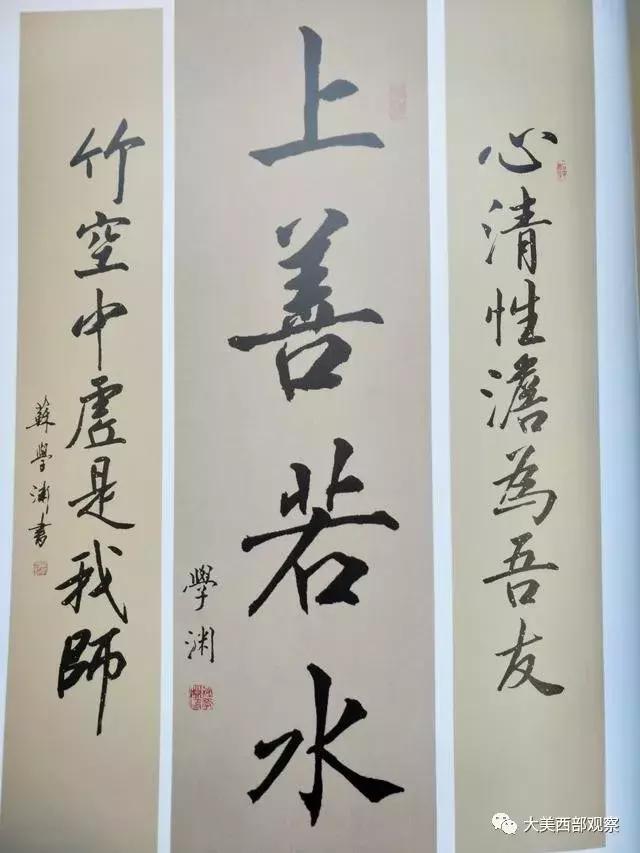 心清性澹為吾友
上善若水
學渊
竹空中虛是我師
蘇學渊书
大美西部观察